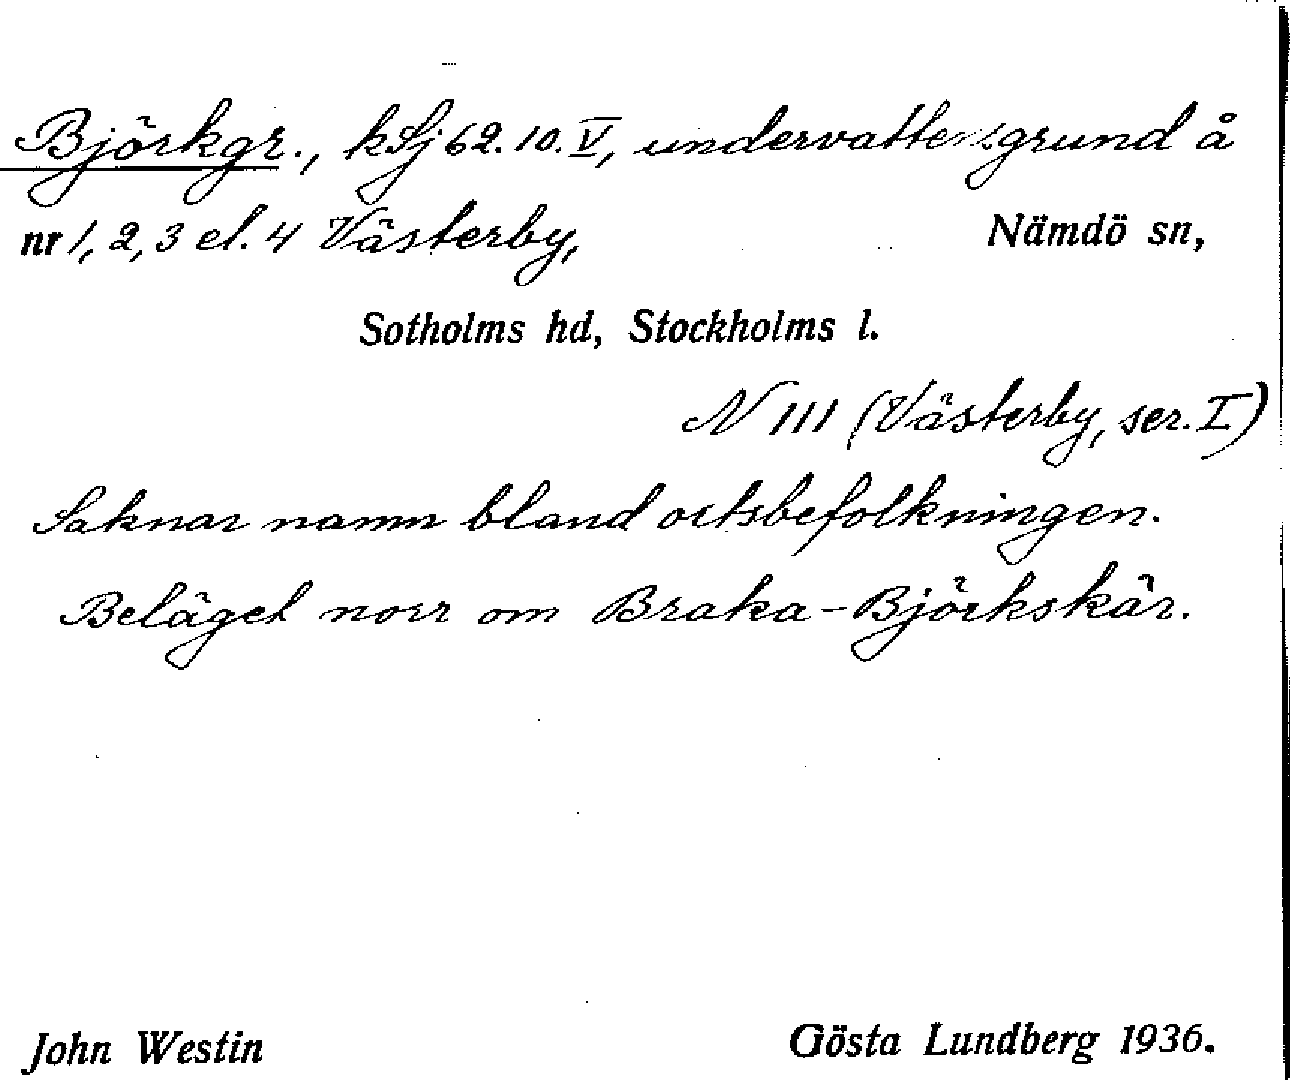 Björkgr., kSj 62.10.V, undervattensgrund å
nr 1, 2, 3 el. 4 Västerby, Nämdö sn,
Sotholms hd, Stockholms l.
N 111 (Västerby, ser. I)
Saknar namn bland ortsbefolkningen.
Beläget norr om Braka-Björkskär.
John Westin Gösta Lundberg 1936.